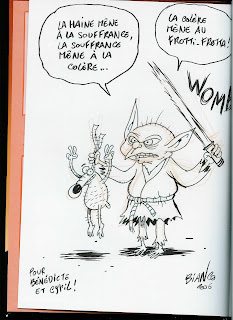 LA HAINE MÈNE
À LA SOUFFRANCE,
LA SOUFFRANCE
MÈNE À LA
COLÈRE...
LA COLÈRE
MÈNE AU
FROTTI-FROTTA!
WOMB
POUR
BÉNÉDICTE
ET CYRIL!
BIANCO